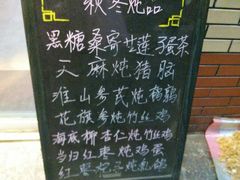 秋冬炖品
黑糖桑寄廿莲子蛋茶
天麻炖猪脑
淮山参芪炖鹌鹑
花旗参炖竹丝鸡
海底椰杏仁炖竹丝鸡
当归红枣炖鸡蛋
红枣炖乳鸽